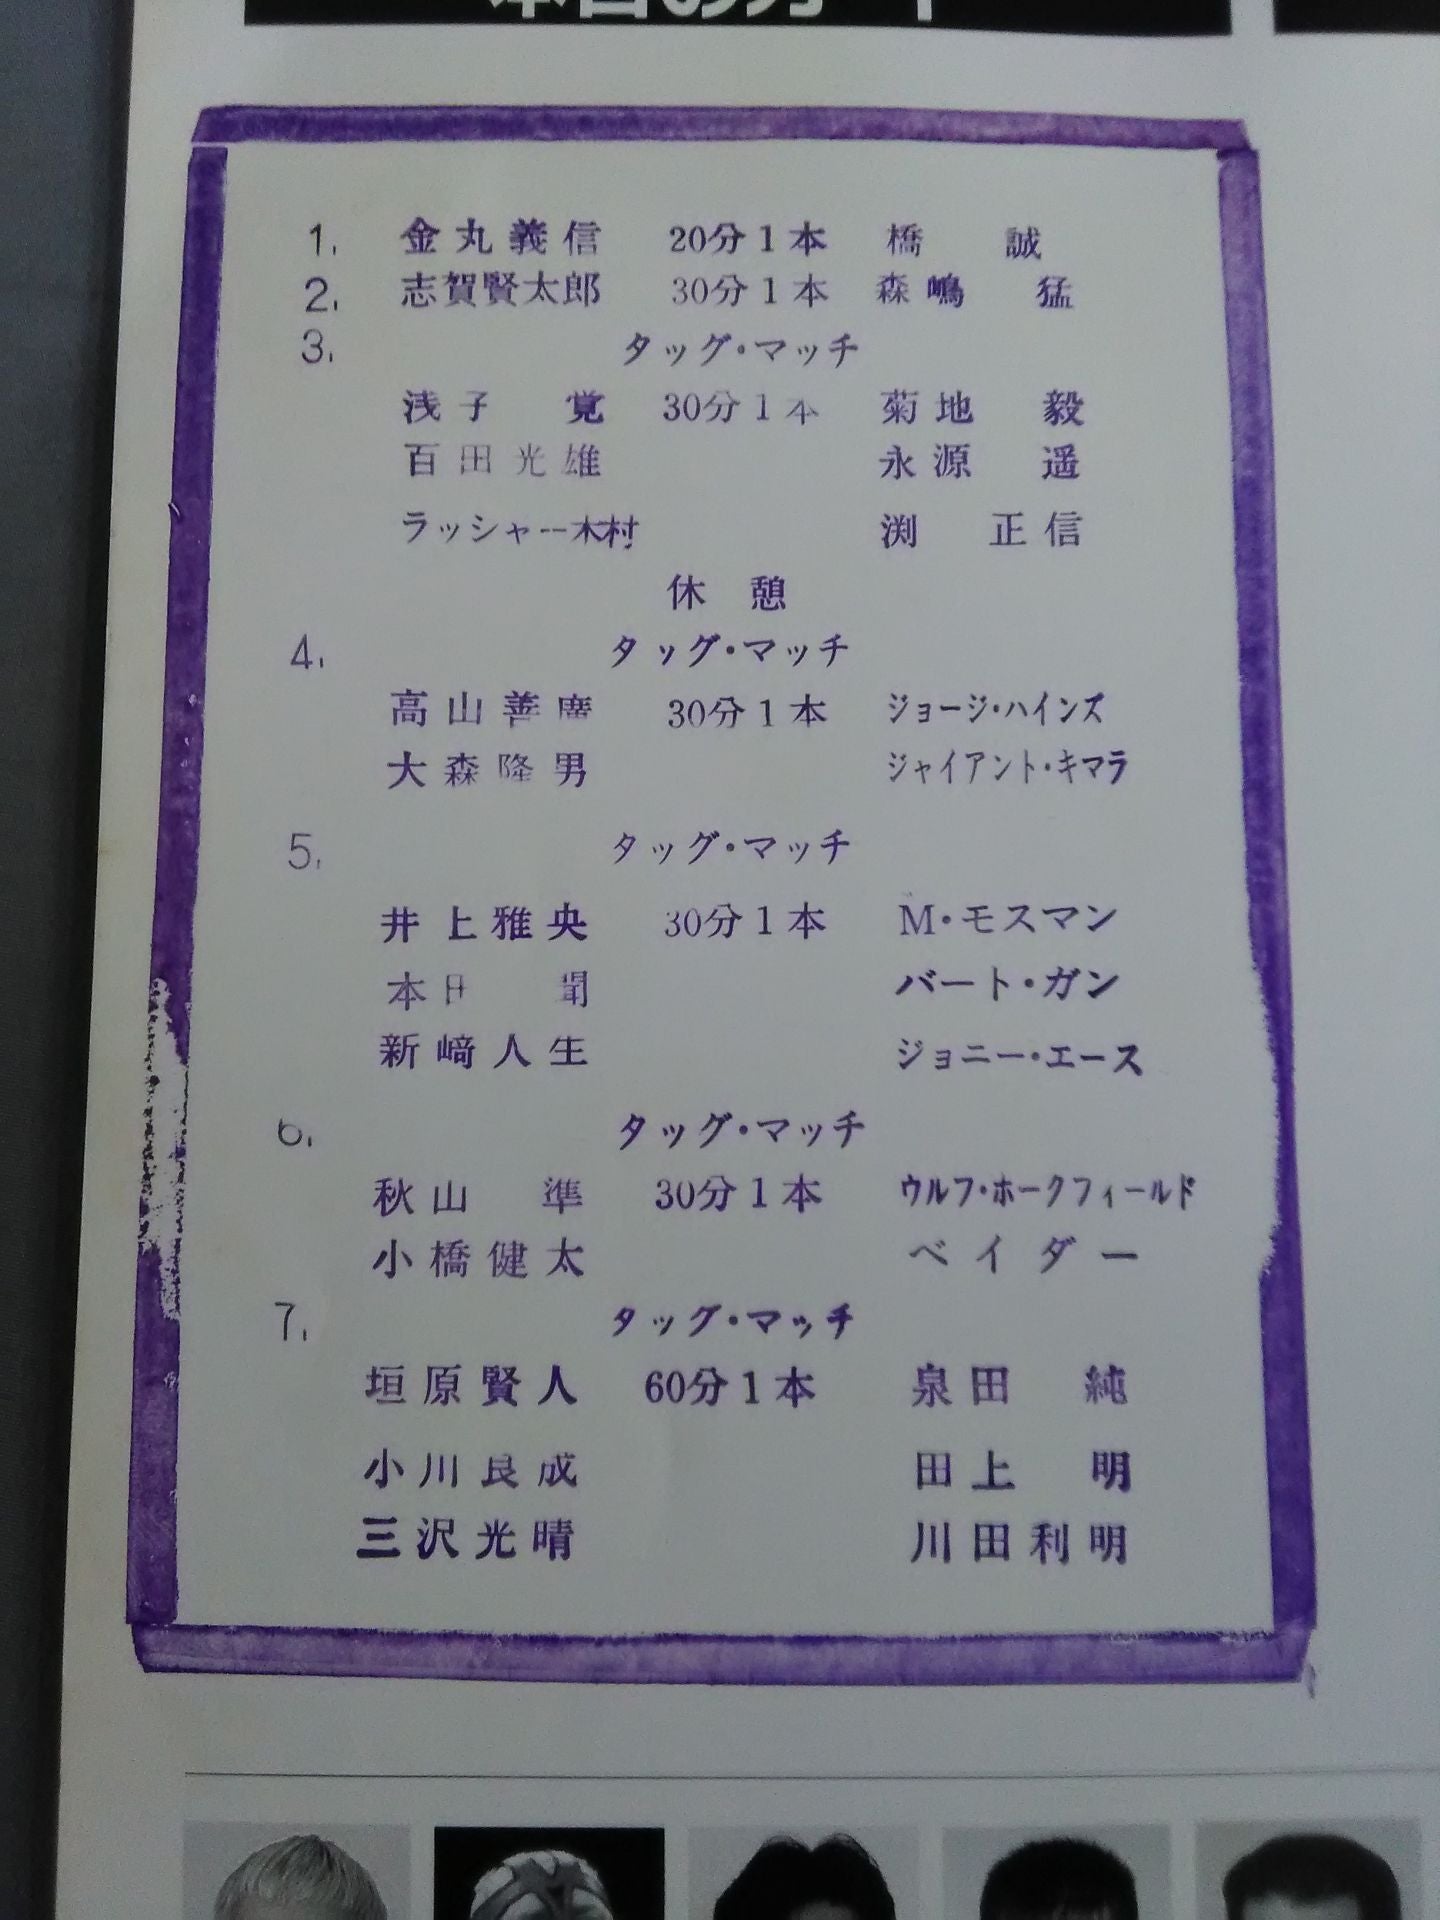 本日のカード
1. 金丸義信 20分1本 橋 誠
2. 志賀賢太郎 30分1本 森嶋 猛
3. タッグ・マッチ
浅子 覚 30分1本 菊地 毅
百田光雄 永源 遥
ラッシャー木村 渕 正信
休憩
4. タッグ・マッチ
高山善廣 30分1本 ジョージ・ハインズ
大森隆男 ジャイアント・キマラ
5. タッグ・マッチ
井上雅央 30分1本 M・モスマン
本田 聞 バート・ガン
新崎人生 ジョニー・エース
6. タッグ・マッチ
秋山 準 30分1本 ウルフ・ホークフィールド
小橋健太 ベイダー
7. タッグ・マッチ
垣原賢人 60分1本 泉田 純
小川良成 田上 明
三沢光晴 川田利明